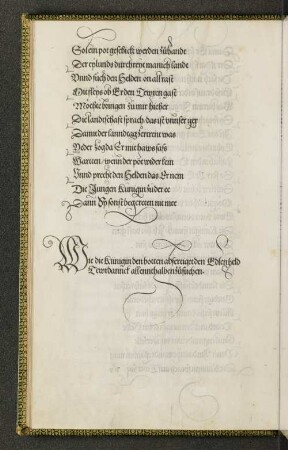 Sol ein pot geschickt werden zůhandt
Der eylunds durchreyt manich landt
Vnnd such den Helden on all rast
Mit fleys ob Er den Tewren gast
Möchte bringen zů mir hieher
Die landtschafft sprach das ist vnnser ger
Dann der sanndtag ferren was
Yeder zog da Er mit haws sass
Warten wenn der pot wider kem
Vnnd precht den Helden das Er nem
Die Jungen Künigin zů der ee
Dann Sy sonst begerten nit mee
Wie die Künigin den botten abfertiget den Edlen held
Tewrdannck allennthalben zůsuchen.